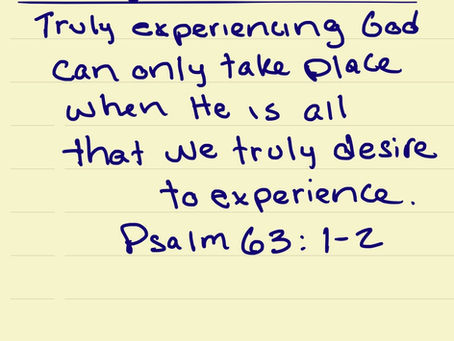 Truly experiencing God
can only take place
when He is all
that we truly desire
to experience.
Psalm 63: 1-2